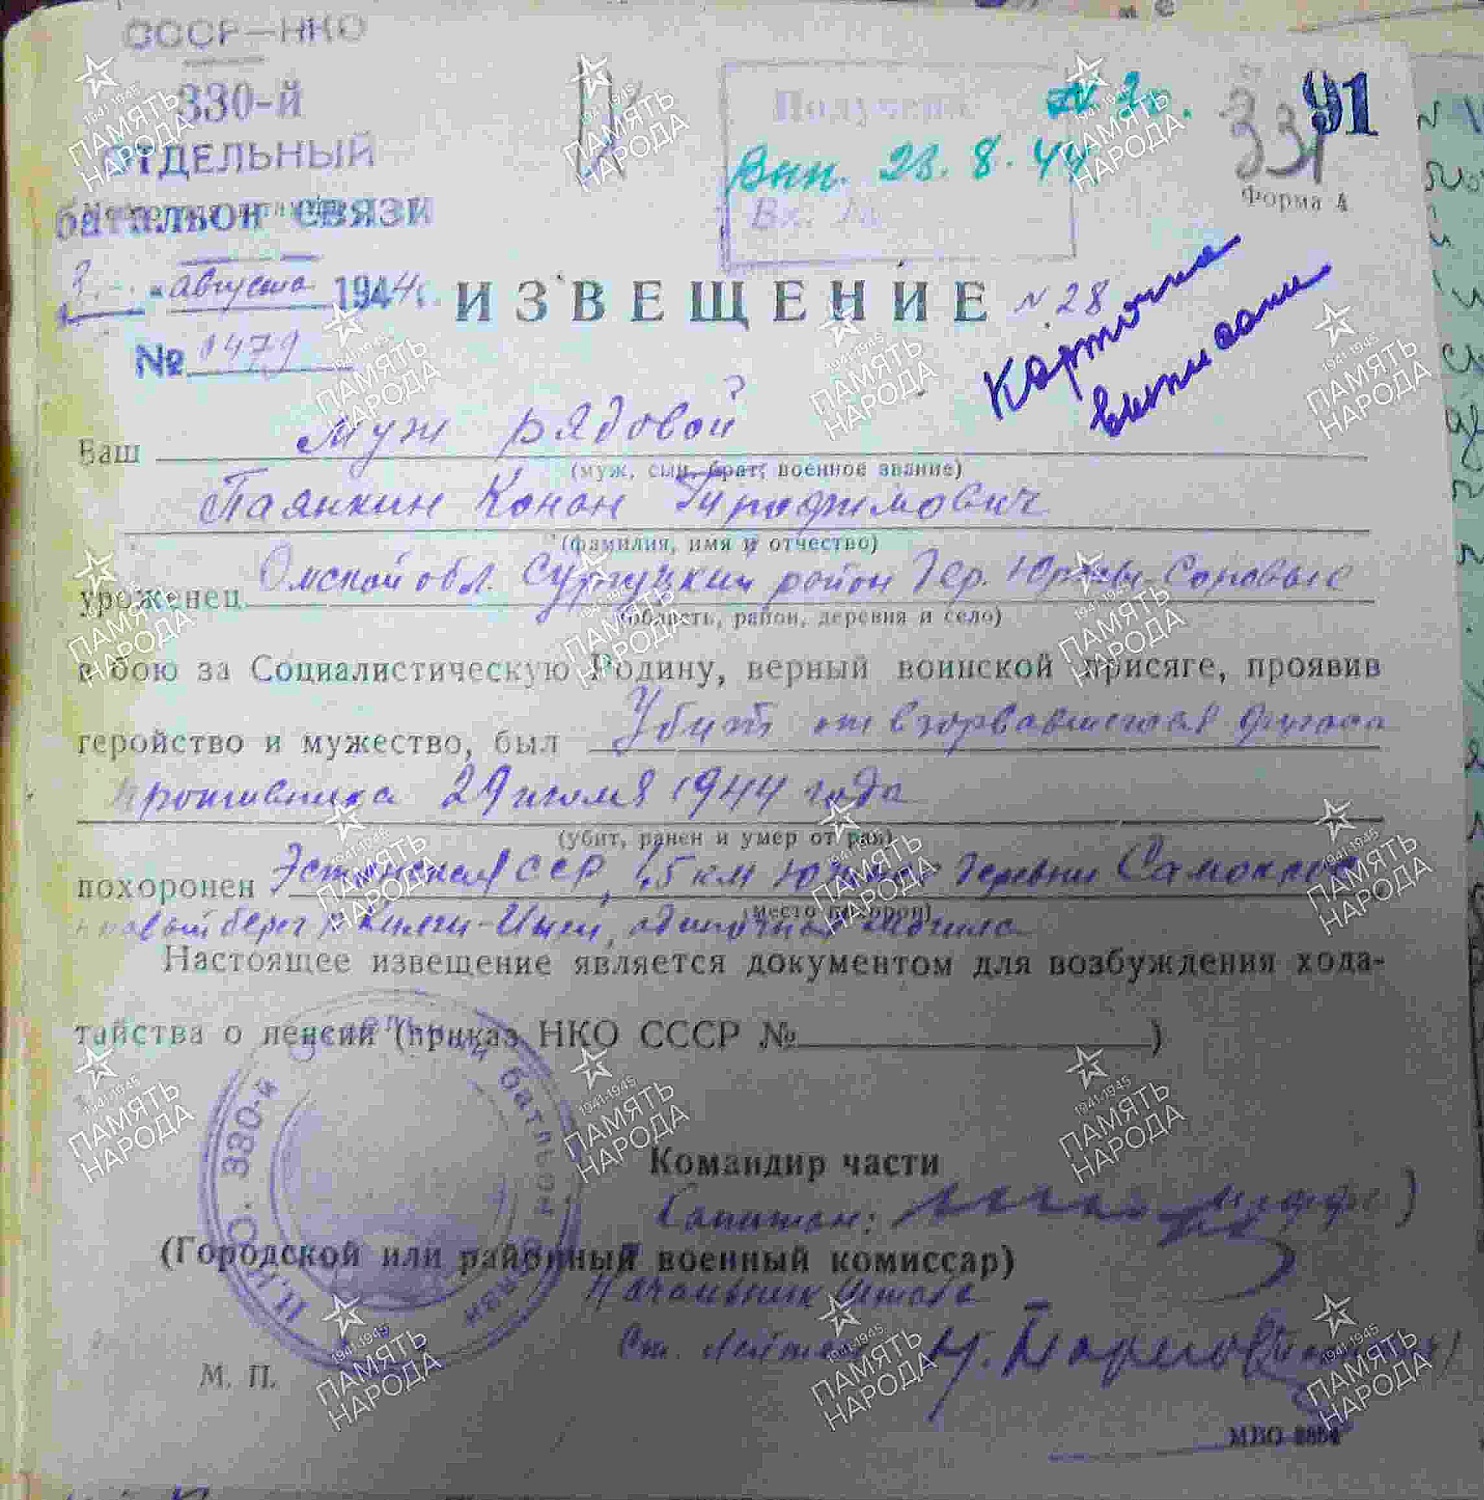 СССР—НКО
330-й
ОТДЕЛЬНЫЙ
батальон связи
августа 1944 г.
№ 1479
Получена
Вып. 23. 8. 44
Вх. №
91
331
Форма 4
ИЗВЕЩЕНИЕ N 28
Карточка
выписана
Ваш муж рядовой
(муж, сын, брат, военное звание)
Паянкин Конон
(фамилия, имя и отчество)
уроженец Омской обл. Сургуцкий район дер. Юрты-Соровые
(область, район, деревня и село)
в бою за Социалистическую Родину, верный воинской присяге, проявив
геройство и мужество, был Убит от взорвавшегося фугаса
противника 29 июля 1944 года
(убит, ранен и умер от ран)
похоронен Эстонская ССР, 1,5 км Южнее деревни
(место похорон)
берег р. одиночная могила
Настоящее извещение является документом для возбуждения хода-
тайства о пенсии (приказ НКО СССР № )
Командир части
Капитан:
(Городской или районный военный комиссар)
Начальник Штаба
Ст. Лейтен
М. П.
Н.К.О. 330-й Отдельный батальон связи
МВО
1941-1945
ПАМЯТЬ
НАРОДА